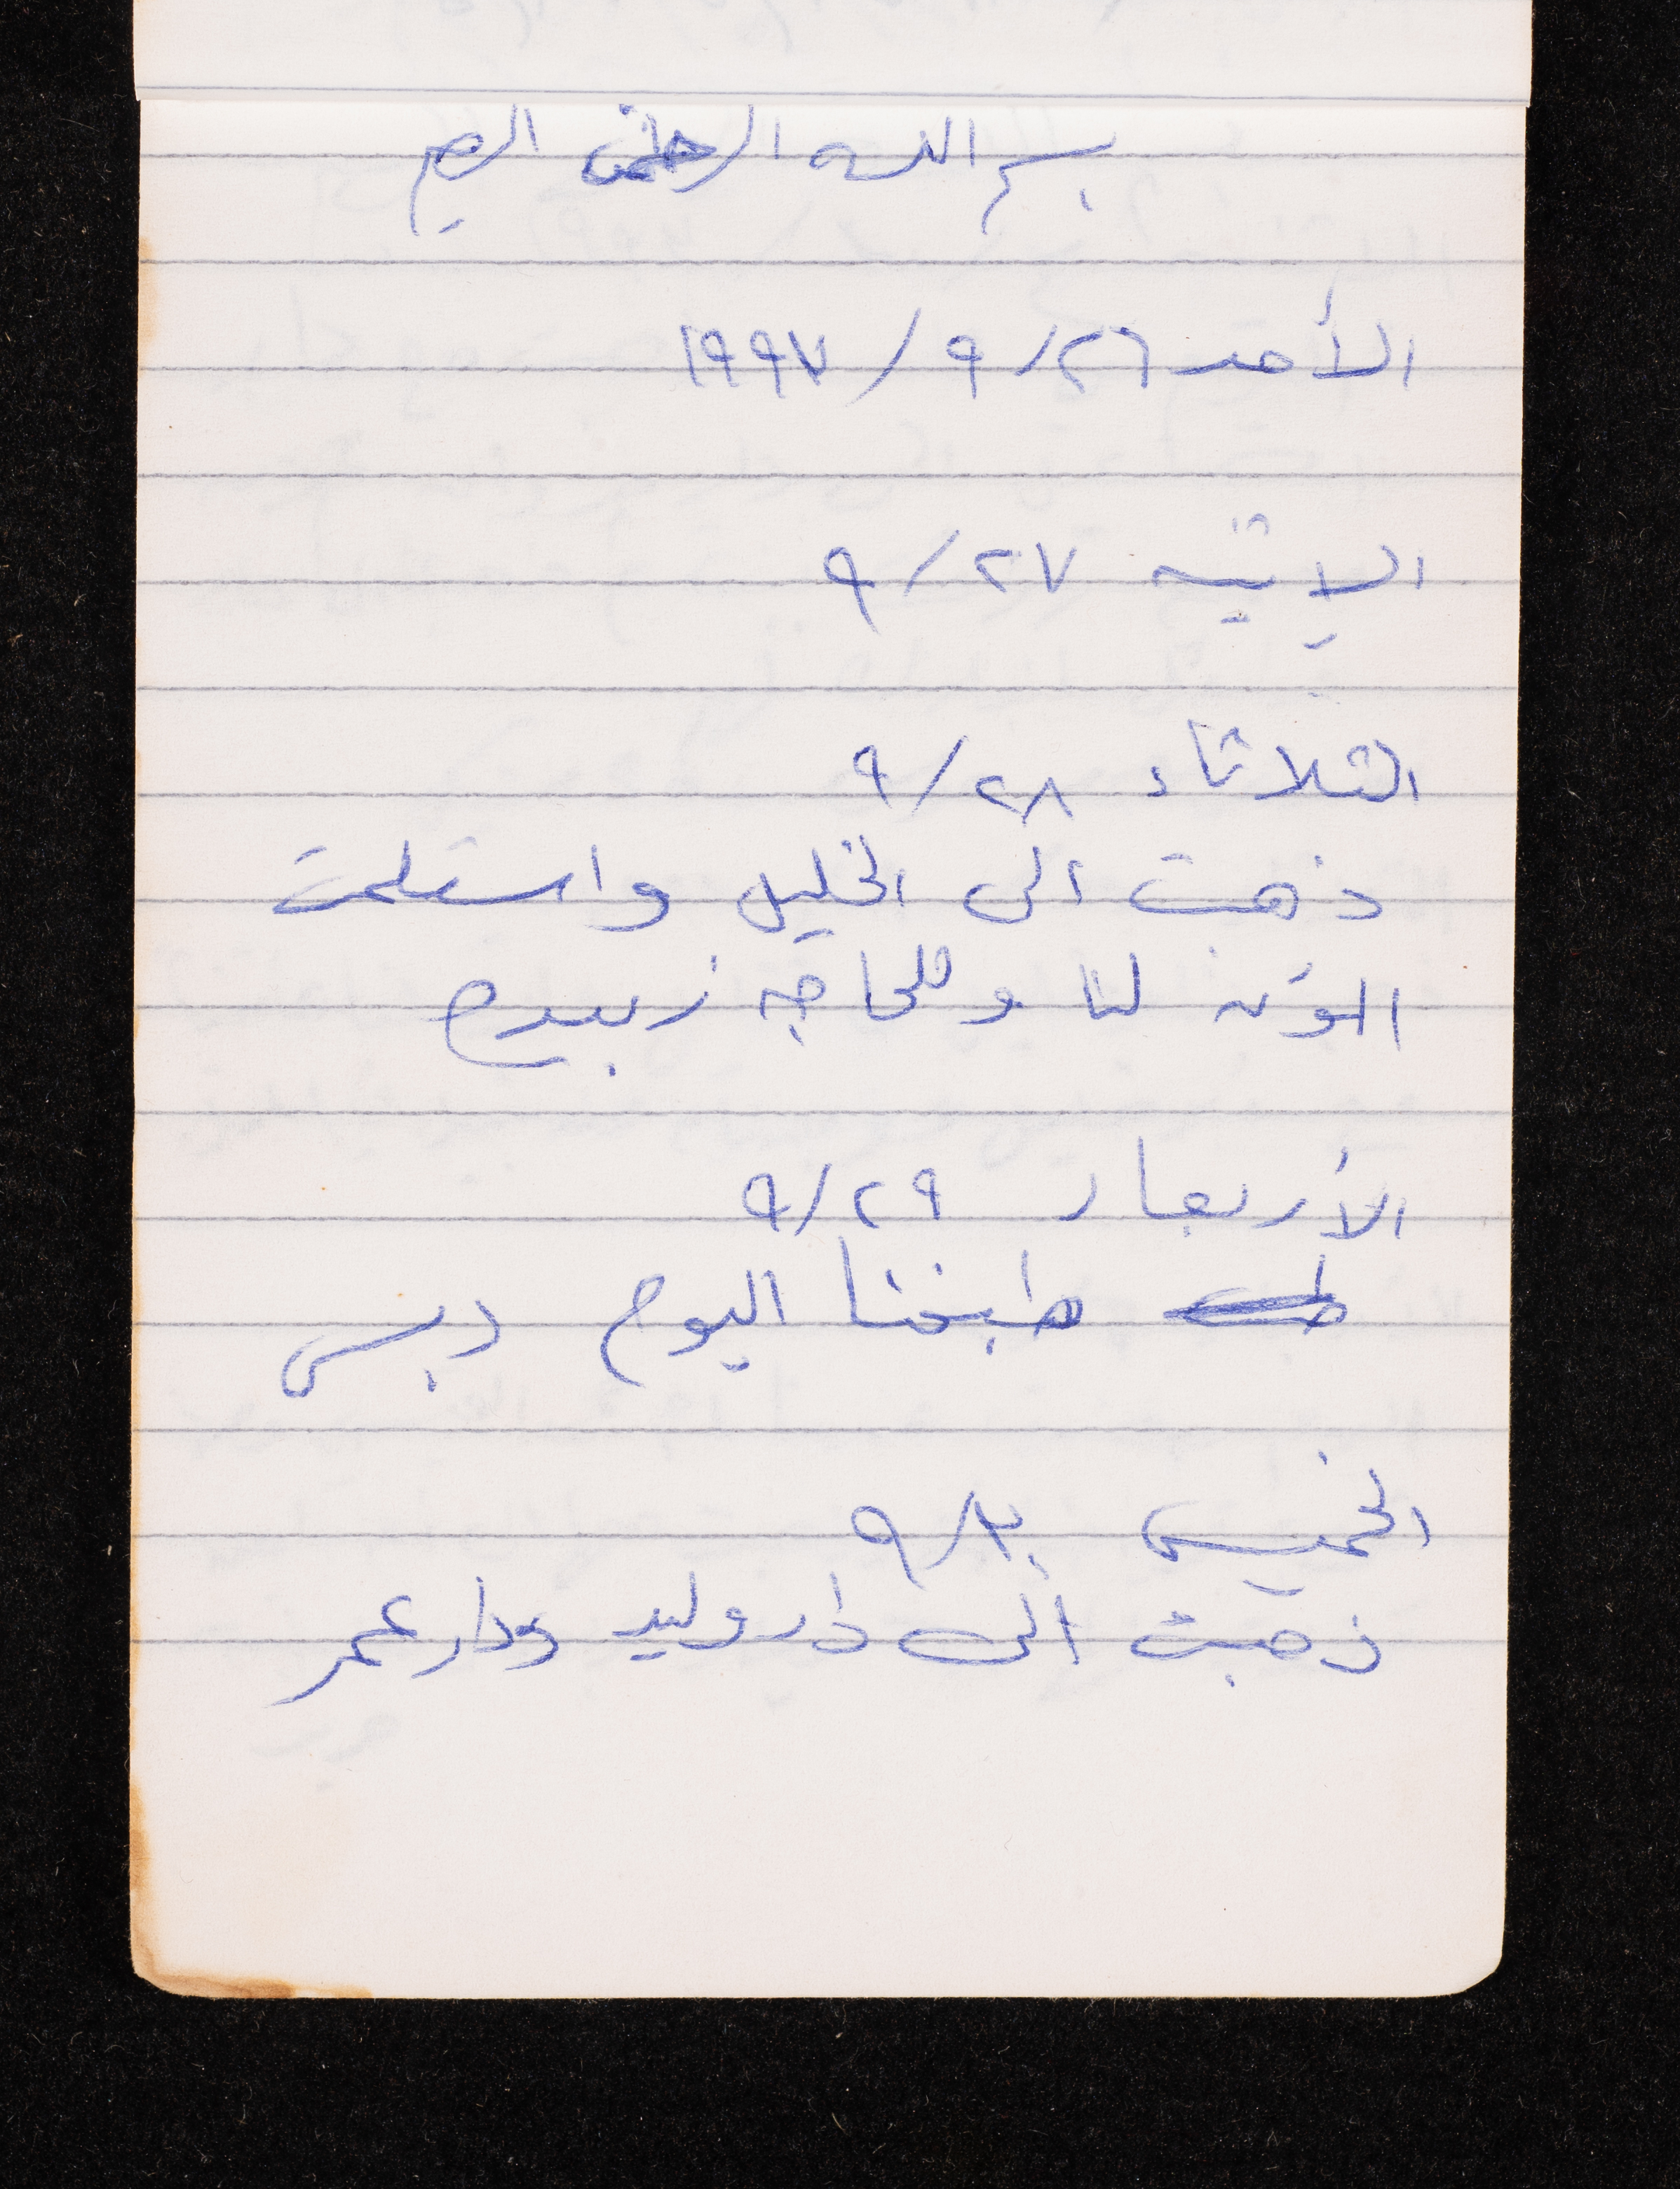 بسم الله الرحمن الرحيم
الأحد ٢٦/ ٩ / ١٩٩٧
الاثنين ٢٧/ ٩
الثلاثاء ٢٨/ ٩
ذهبت الى الخليل واستلمت
المؤن لنا وللحاجه زبيده
الأربعاء ٢٩/ ٩
طبخنا اليوم دبس
الخميس ٣٠/ ٩
ذهبت الى دار وليد ودار عمر